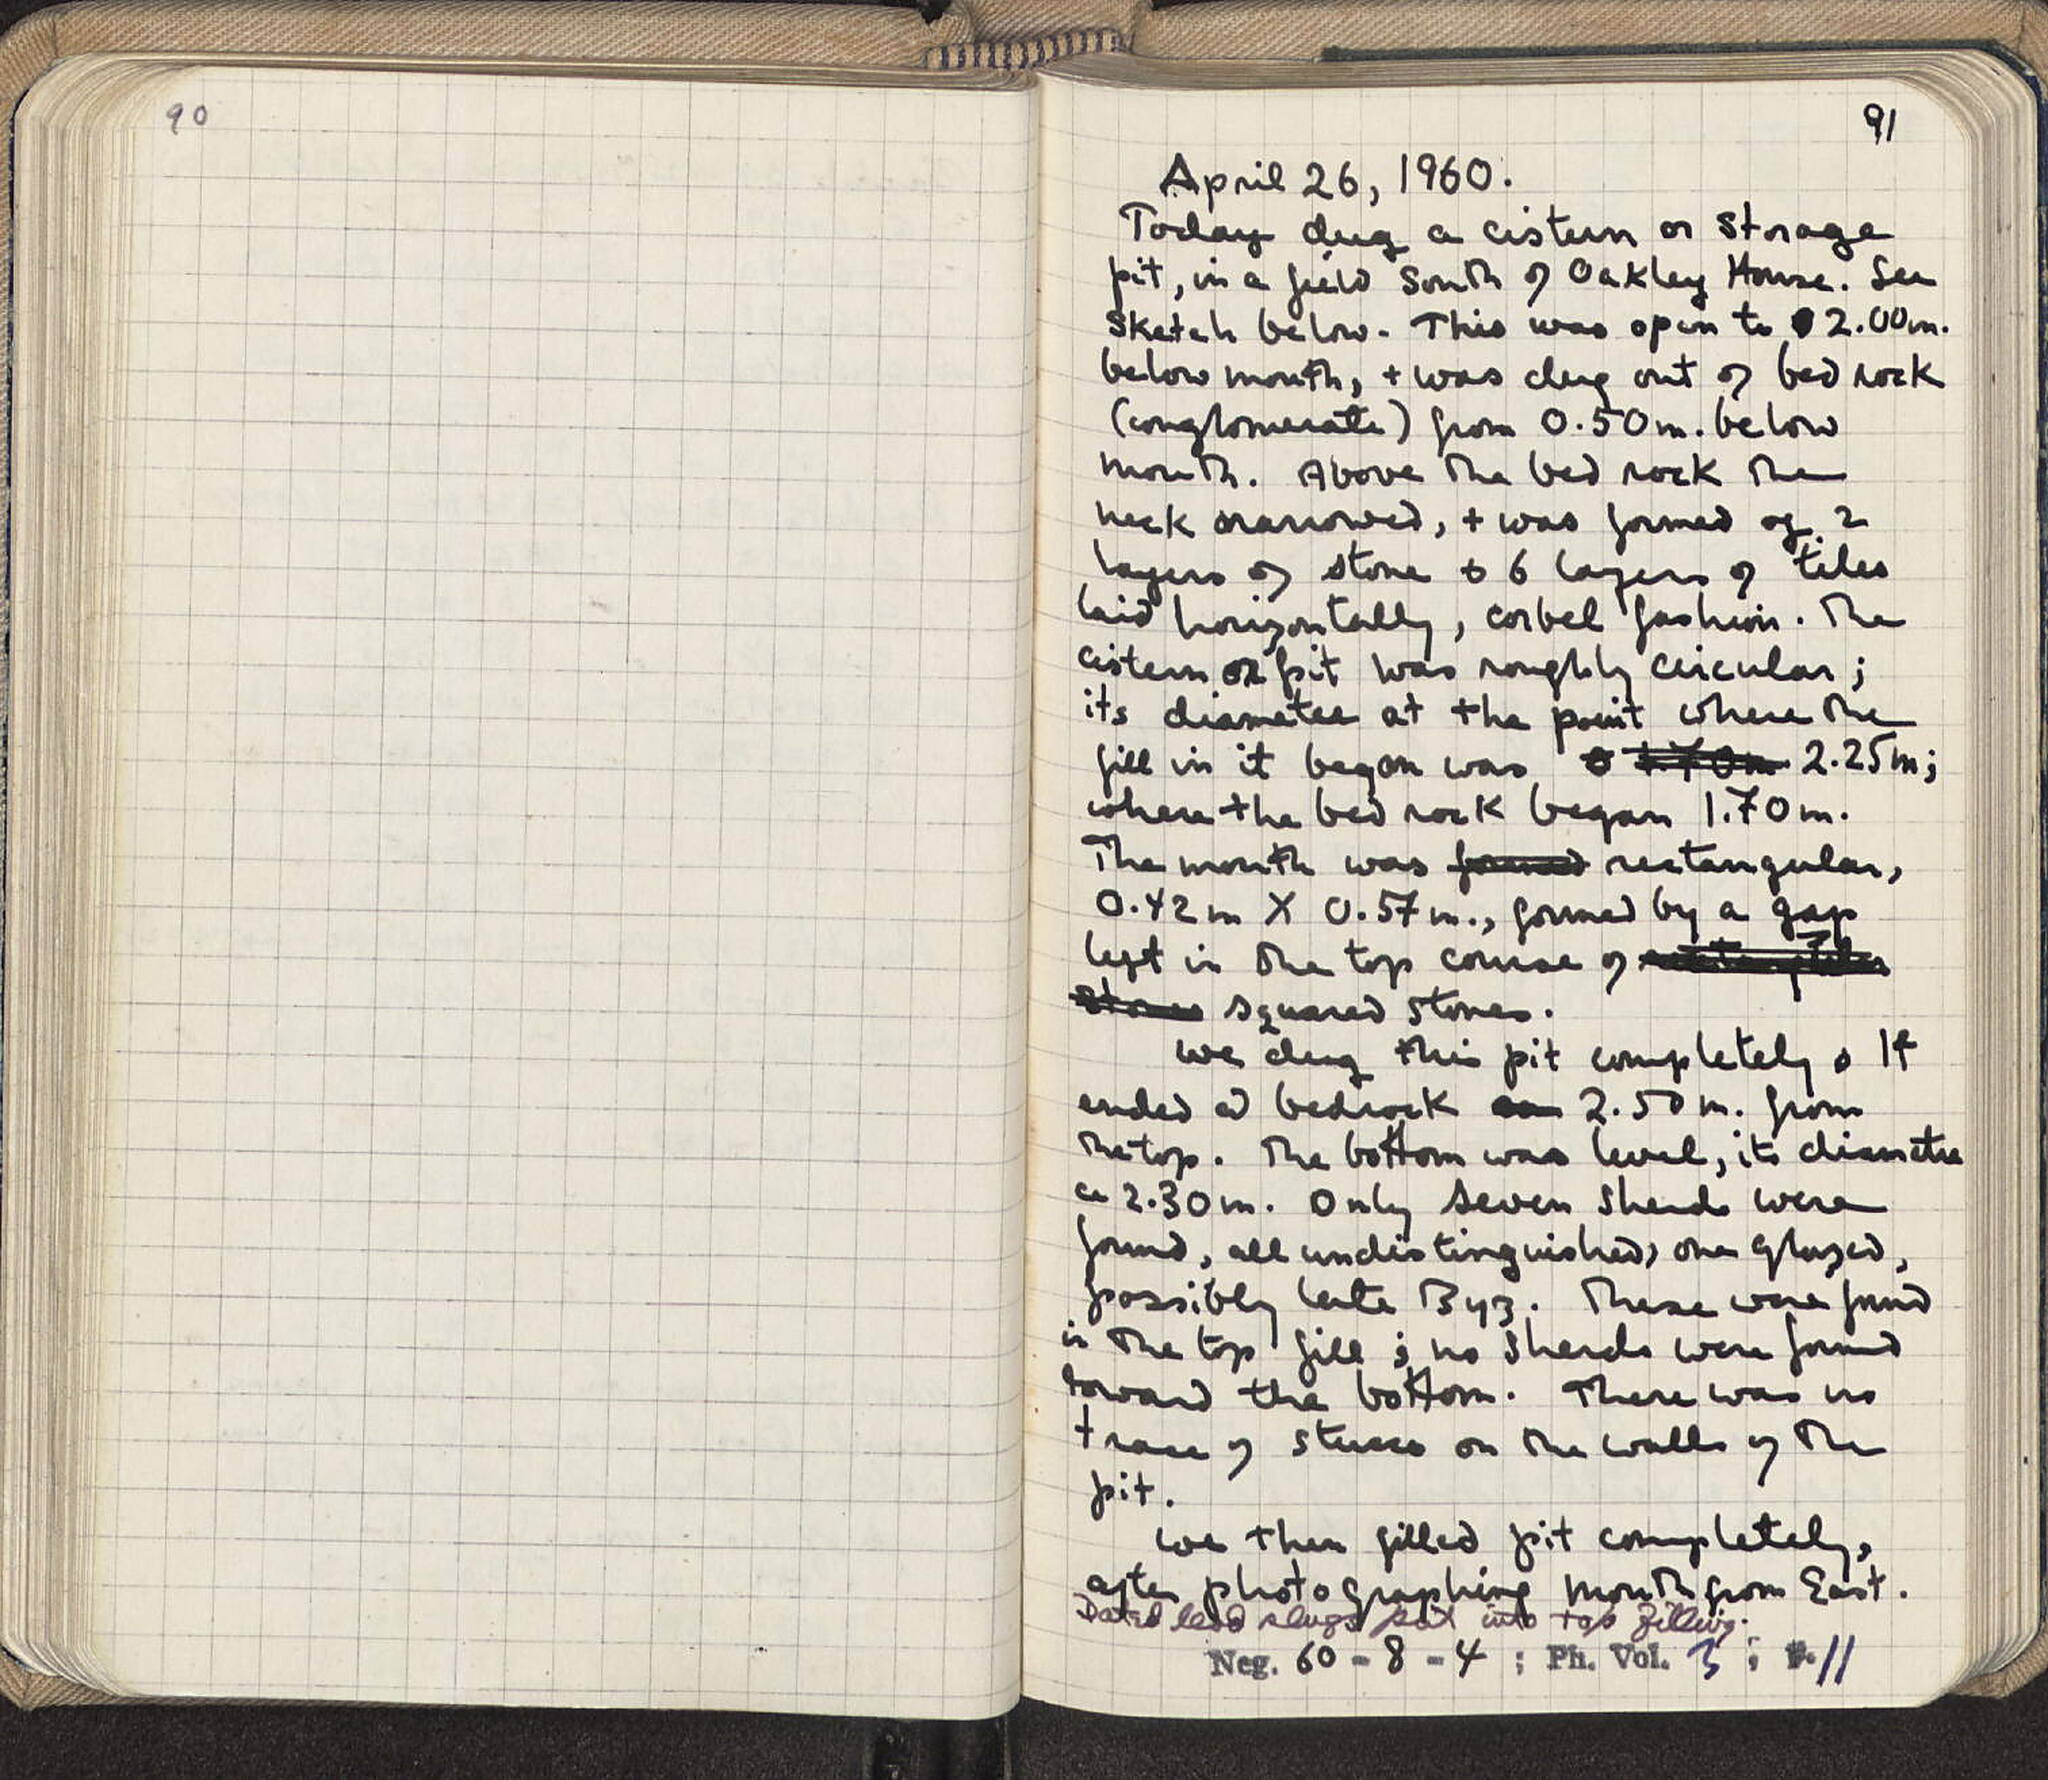 90
91
April 26, 1960.
Today dug a cistern or storage
pit, in a field South of Oakley House. See
sketch below. This was open to 2.00m.
below mouth, + was dug out of bed rock
(conglomerate) from 0.50m. below
mouth. Above the bed rock the
neck narrowed, + was formed of 2
layers of stone + 6 layers of tiles
laid horizontally, corbel fashion. The
cistern or pit was roughly circular;
its diameter at the point where the
fill in it began was 1.70m 2.25m;
where the bed rock began 1.70m.
The mouth was formed rectangular,
0.42m X 0.57m., formed by a gap
left in the top course of
stones squared stones.
We dug this pit completely. It
ended at bedrock 2.50m. from
the top. The bottom was level, its diameter
ca 2.30m. Only seven sherds were
found, all undistinguished, one glazed,
possibly late Byz. These were found
in the top fill; no sherds were found
toward the bottom. There was no
trace of stucco on the walls of the
pit.
We then filled pit completely,
after photographing mouth from East.
Dated lead slugs put into top filling.
Neg. 60-8-4; Ph. Vol. 3; p. 11